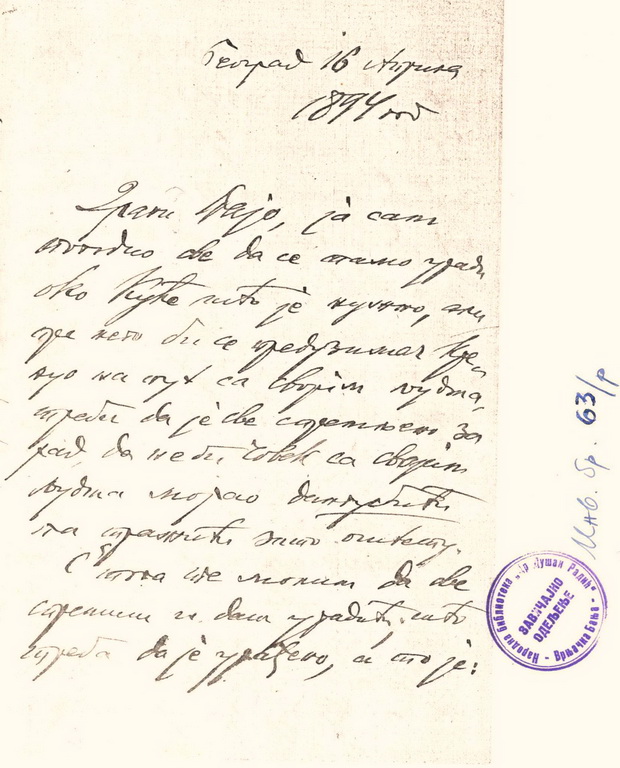 Београд 16 Априла
1894 год
Драги Пајо, ја сам
да се тамо уради
око Куће што је нужно, али
пре него би се предузимач кре-
нуо на пут са својим људма,
треба да је све спремљено за
рад, да не би човек са својим
људма морао дангубити
па тражити зато оштету.
С тога те молим да све
спремиш и даш урадити што
треба да је урађено, а то је:
Инв. бр. 63/р
Народна библиотека „Др Душан Радић“ - Врњачка Бања -
ЗАВИЧАЈНО
ОДЕЉЕЊЕ